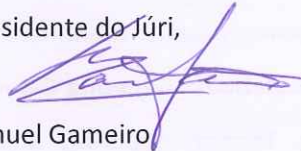 sidente do Júri,
nuel Gameiro